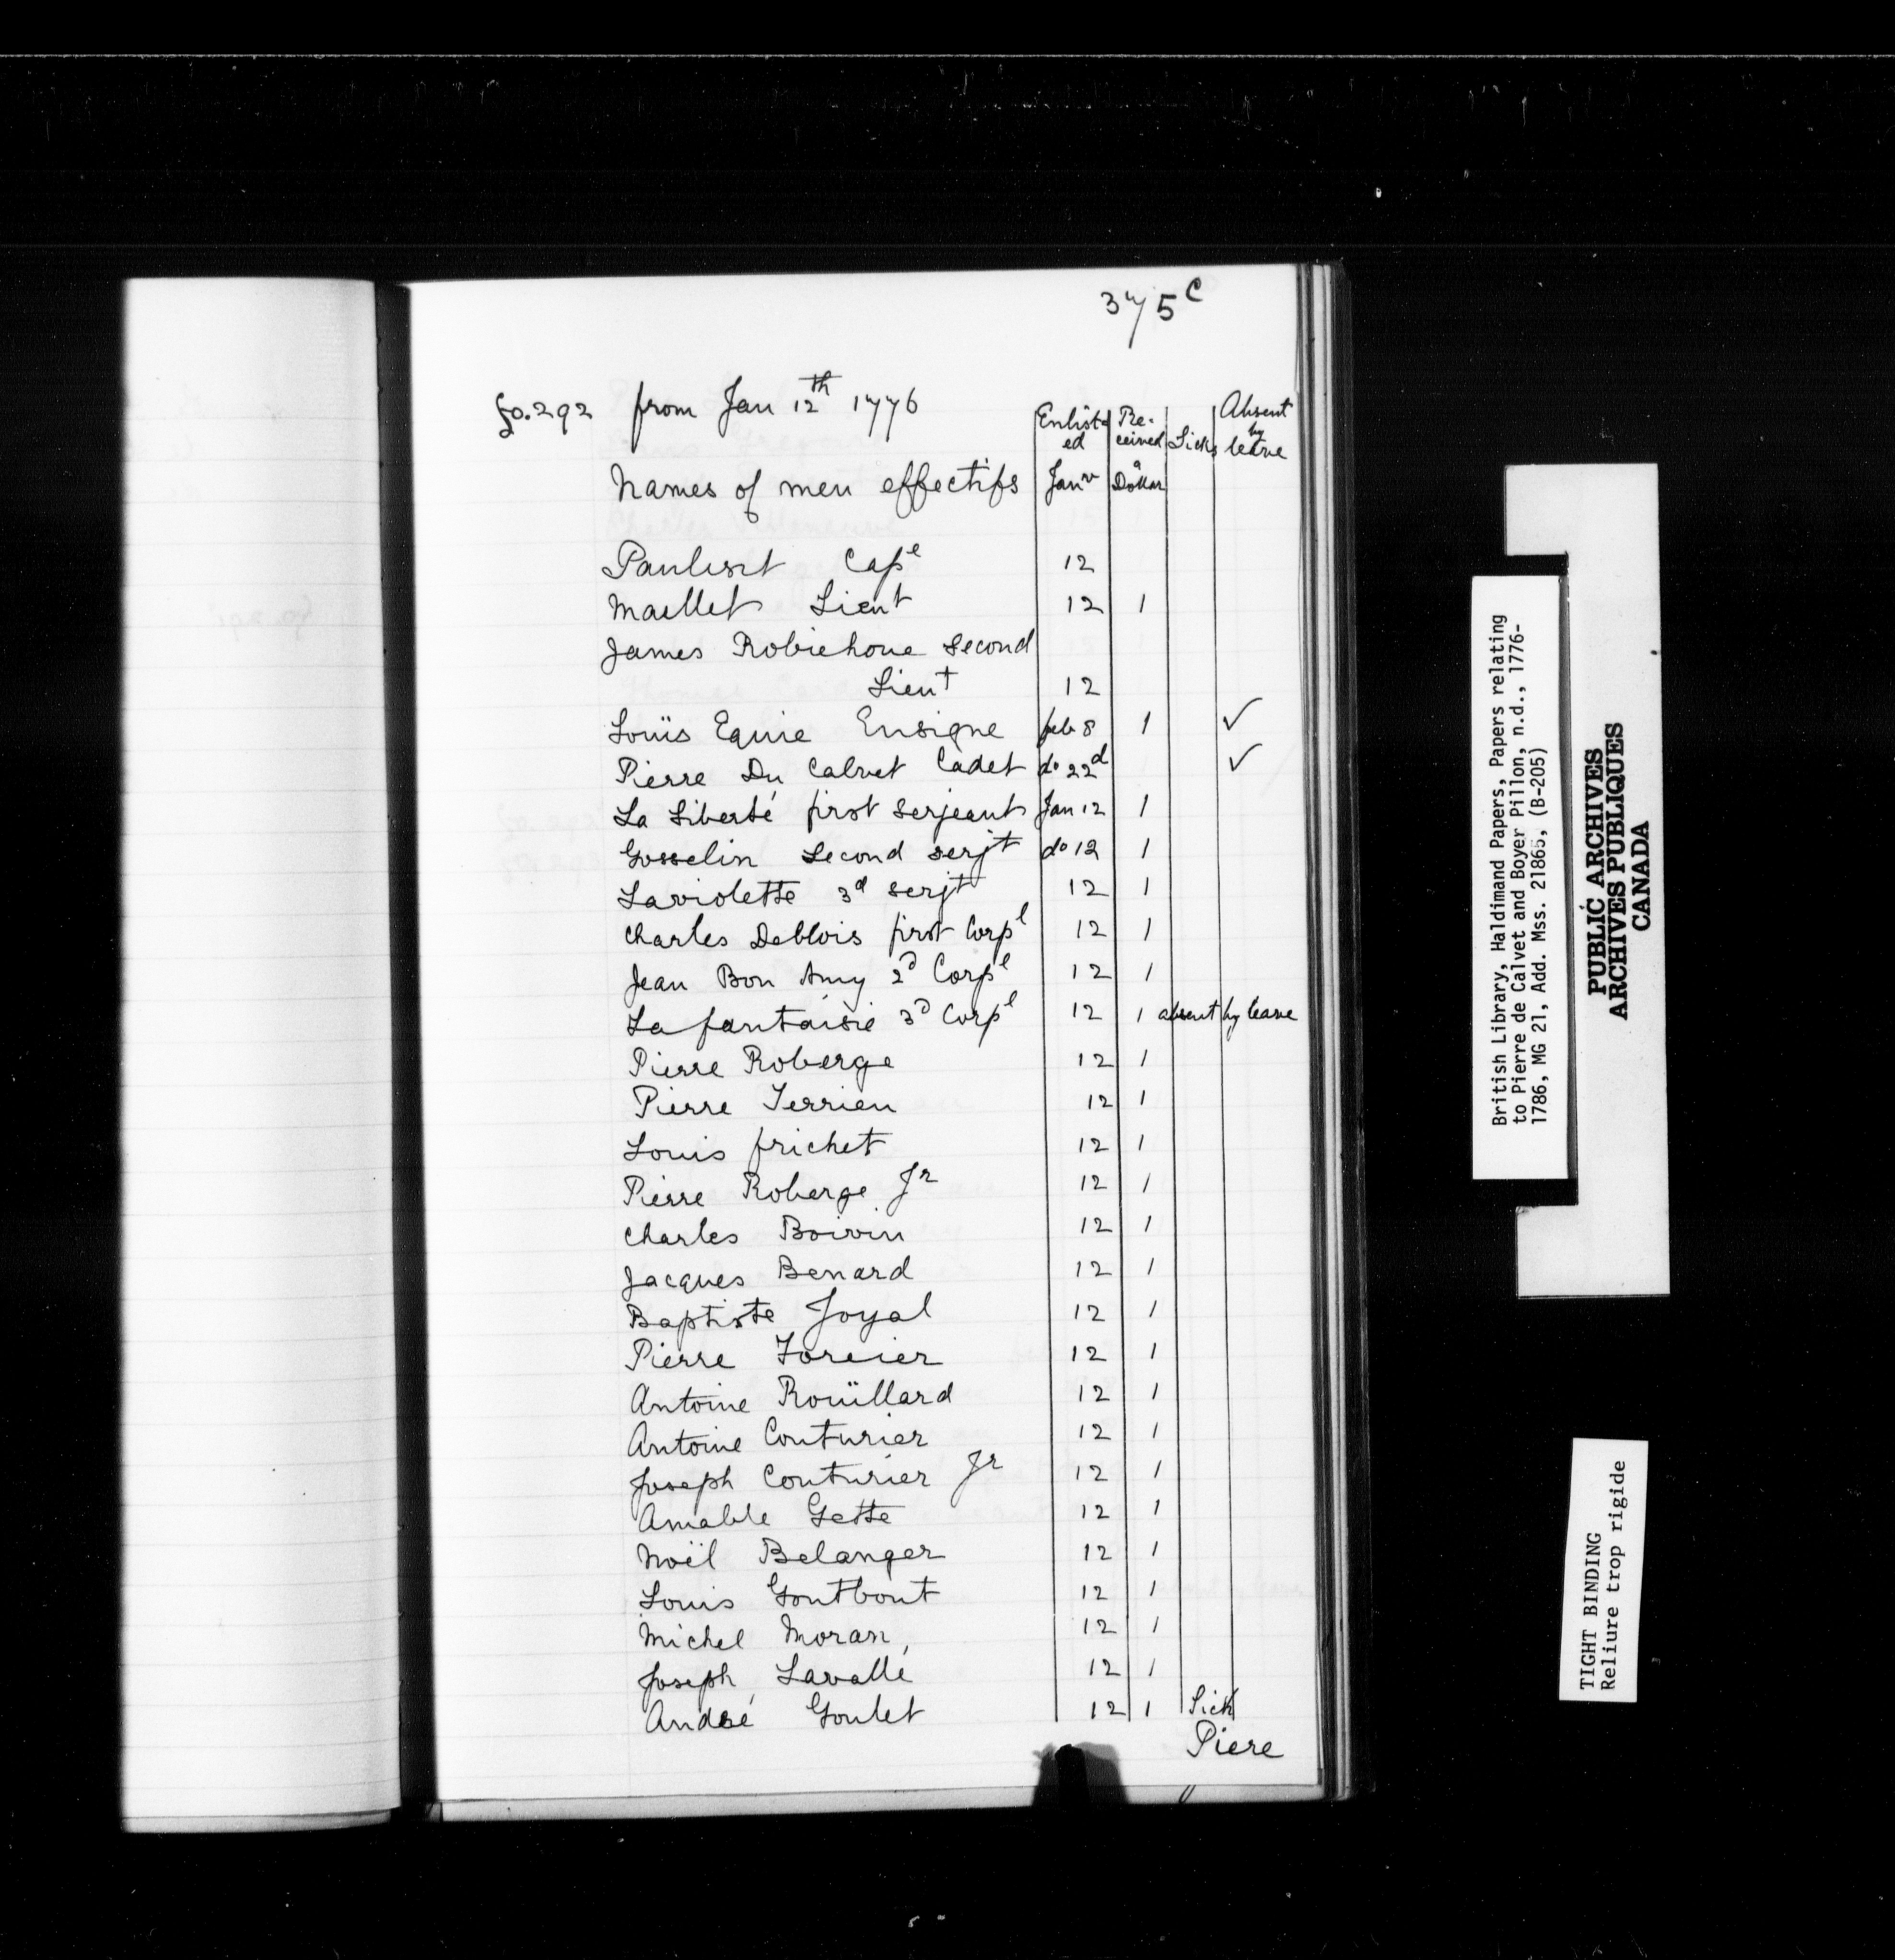 375 c
fo. 292 from Jan 12th 1776
Enlist-ed Re-ceived Sick Absent by leave
Names of men effectifs Janv a Dollar
Pauliszt Cape 12
Maellet Lieut 12 1
James Robichoue second
Lieut 12
Louïs Equie Ensigne feb 8 1 ✓
Pierre Du Calvet Cadet do 22d ✓
La Liberté first serjeant Jan 12 1
Gosselin second serjt do 12 1
Laviolette 3d serjt 12 1
Charles Deblois first Corpl 12 1
Jean Bon Amy 2d Corpl 12 1
La fantaisie 3d Corpl 12 1 absent by leave
Pierre Roberge 12 1
Pierre Terrien 12 1
Louis frichet 12 1
Pierre Roberge Jr 12 1
Charles Boivin 12 1
Jacques Benard 12 1
Baptiste Joyal 12 1
Pierre Forcier 12 1
Antoine Roüillard 12 1
Antoine Couturier 12 1
Joseph Couturier Jr 12 1
Amable Gette 12 1
Noël Belanger 12 1
Louis Goutbout 12 1
Michel Moran, 12 1
Joseph Lavallé 12 1
André Goulet 12 1 Sick
Piere
British Library, Haldimand Papers, Papers relating
to Pierre de Calvet and Boyer Pillon, n.d., 1776-
1786, MG 21, Add. Mss. 21865, (B-205)
PUBLIC ARCHIVES
ARCHIVES PUBLIQUES
CANADA
TIGHT BINDING
Reliure trop rigide